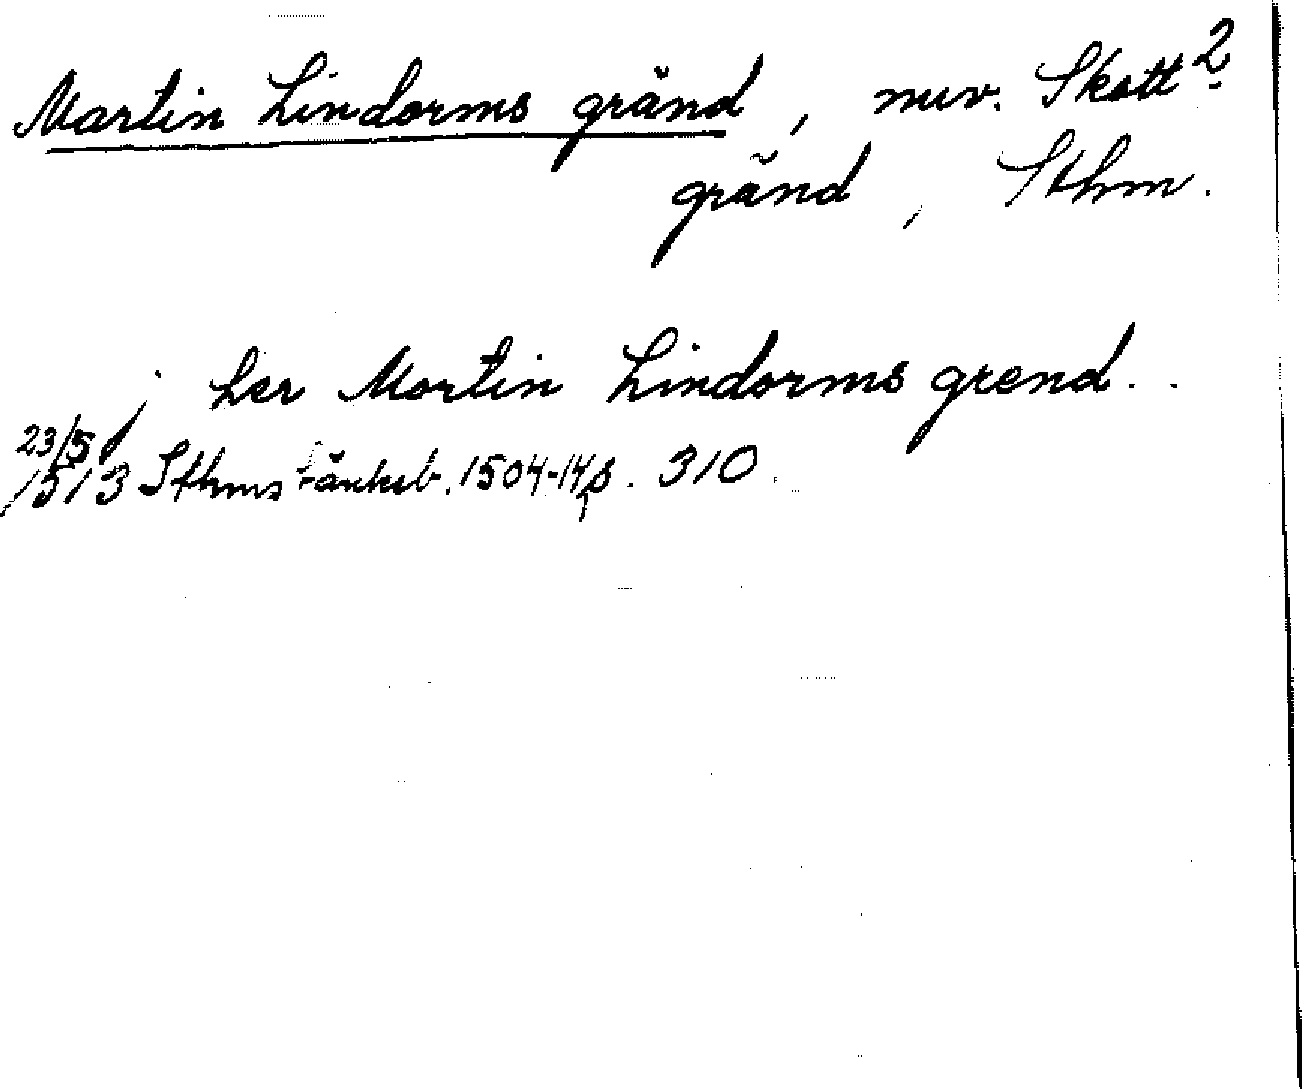 Martin Lindorms gränd, nuv. Skott 2
gränd, Sthm.
j her Mortin Lindorms grend . .
23/5 1513 Sthms tänkeb. 1504-14 s. 310.